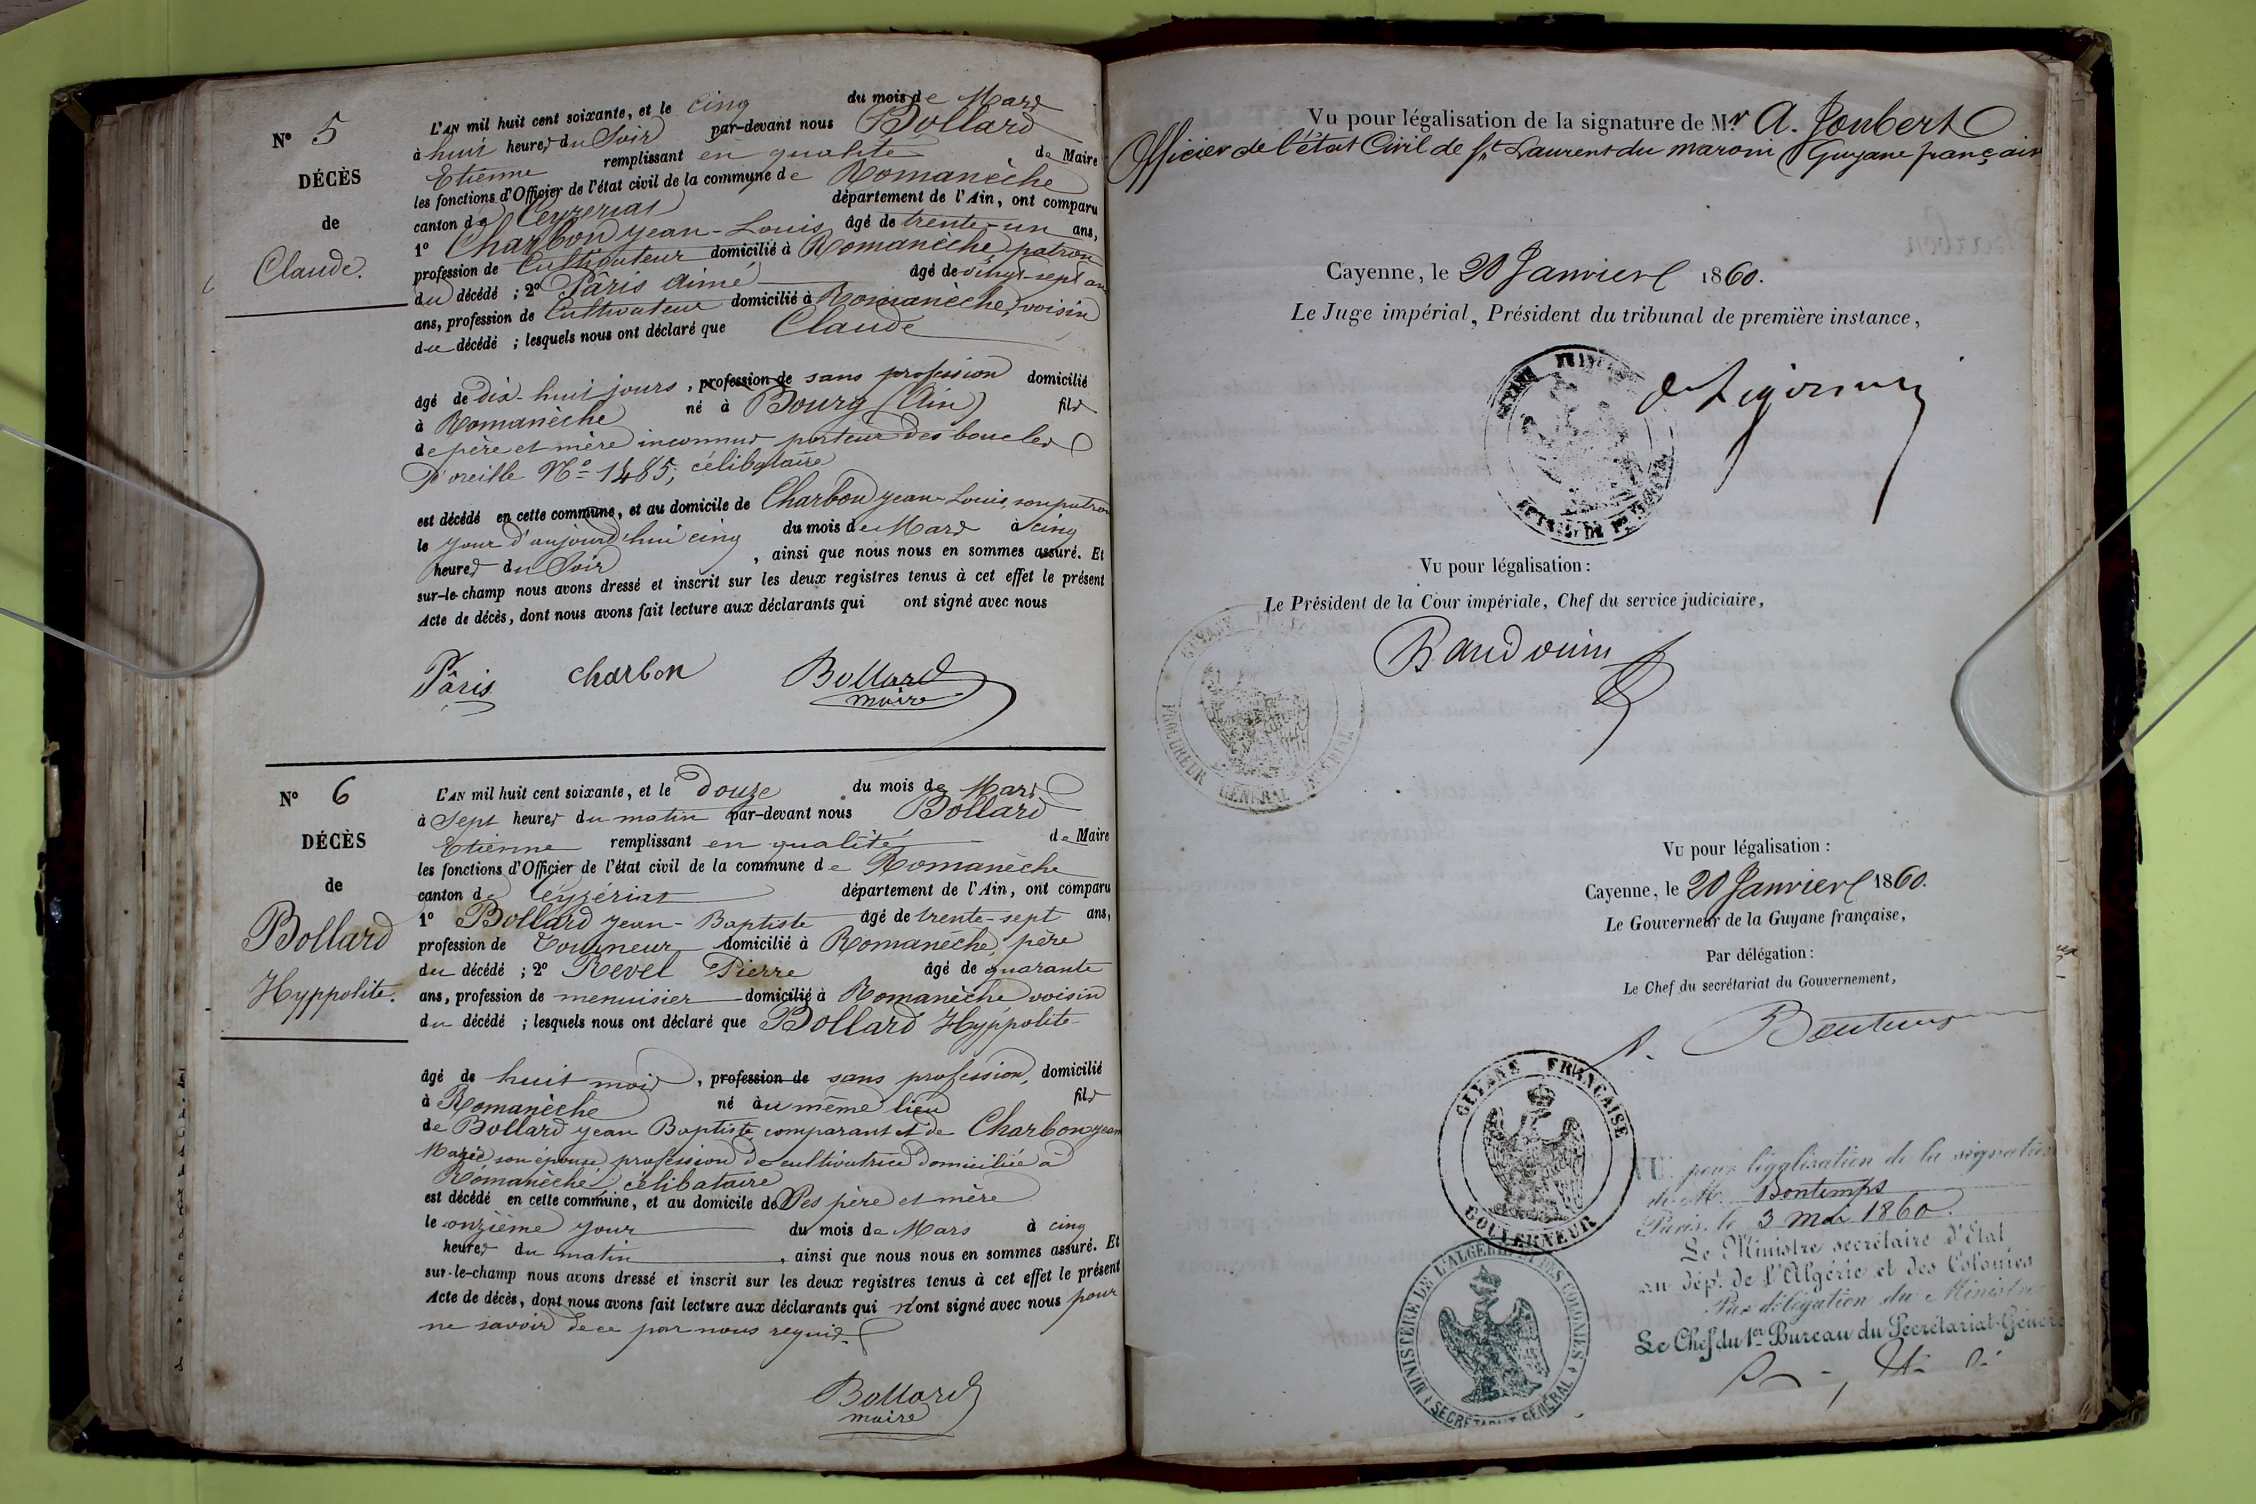 N° 5
DÉCÈS
de
Claude.
L'AN mil huit cent soixante, et le cinq du mois de Mars
à huit heures du Soir par-devant nous Bollard
Etienne remplissant en qualité de Maire
les fonctions d'Officier de l'état civil de la commune de Romanèche
canton de Ceyzeriat département de l'Ain, ont comparu
1° Charbon Jean-Louis âgé de trente-un ans,
profession de Cultivateur domicilié à Romanèche, patron
du décédé ; 2° Pâris Aimé âgé de vingt-sept ans
ans, profession de Cultivateur domicilié à Romanèche, voisin
du décédé ; lesquels nous ont déclaré que Claude
âgé de dix-huit jours, profession de sans profession domicilié
à Romanèche né à Bourg (Ain) fils
de père et mère inconnus porteur des boucles
d'oreille N° 1485, célibataire
est décédé en cette commune, et au domicile de Charbon Jean-Louis, son patron
le jour d'aujourd'hui cinq du mois de Mars à cinq
heures du Soir, ainsi que nous nous en sommes assuré. Et
sur-le-champ nous avons dressé et inscrit sur les deux registres tenus à cet effet le présent
Acte de décès, dont nous avons fait lecture aux déclarants qui ont signé avec nous
Pâris charbon Bollard
maire
N° 6
DÉCÈS
de
Bollard
Hyppolite.
L'AN mil huit cent soixante, et le douze du mois de Mars
à Sept heures du matin par-devant nous Bollard
Etienne remplissant en qualité de Maire
les fonctions d'Officier de l'état civil de la commune de Romanèche
canton de Ceyzériat département de l'Ain, ont comparu
1° Bollard Jean-Baptiste âgé de trente-sept ans,
profession de Tourneur domicilié à Romanèche, père
du décédé ; 2° Revel Pierre âgé de quarante
ans, profession de menuisier domicilié à Romanèche voisin
du décédé ; lesquels nous ont déclaré que Bollard Hyppolite
âgé de huit mois, profession de sans profession, domicilié
à Romanèche né au même lieu fils
de Bollard Jean Baptiste comparant et de Charbon Jean
Marie son épouse profession de cultivatrice domiciliée à
Romanèche, célibataire
est décédé en cette commune, et au domicile de Ses père et mère
le onzième jour du mois de Mars à cinq
heures du matin, ainsi que nous nous en sommes assuré. Et
sur-le-champ nous avons dressé et inscrit sur les deux registres tenus à cet effet le présent
Acte de décès, dont nous avons fait lecture aux déclarants qui n'ont signé avec nous pour
ne savoir de ce par nous requis.
Bollard
maire
Vu pour légalisation de la signature de Mr A. Joubert
Officier de l'état Civil de St Laurent du maroni Guyane français
Cayenne, le 20 Janvier 1860.
Le Juge impérial, Président du tribunal de première instance,
Vu pour légalisation :
Le Président de la Cour impériale, Chef du service judiciaire,
Baudouin
GUYANE
PROCUREUR GÉNÉRAL IMPÉRIAL
Vu pour légalisation :
Cayenne, le 20 Janvier 1860.
Le Gouverneur de la Guyane française,
Par délégation :
Le Chef du secrétariat du Gouvernement,
GUYANE FRANÇAISE
GOUVERNEUR
VU pour légalisation de la signature
de M. Bontemps
Paris, le 3 Mai 1860.
Le Ministre secrétaire d'Etat
au dépt. de l'Algérie et des Colonies
Par délégation du Ministre
Le Chef du 1er Bureau du Secrétariat-Généra
MINISTÈRE DE L'ALGÉRIE ET DES COLONIES
SECRÉTARIAT GÉNÉRAL